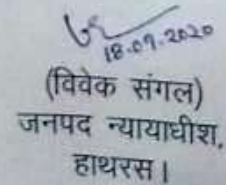 18.09.2020
(विवेक संगल)
जनपद न्यायाधीश,
हाथरस।